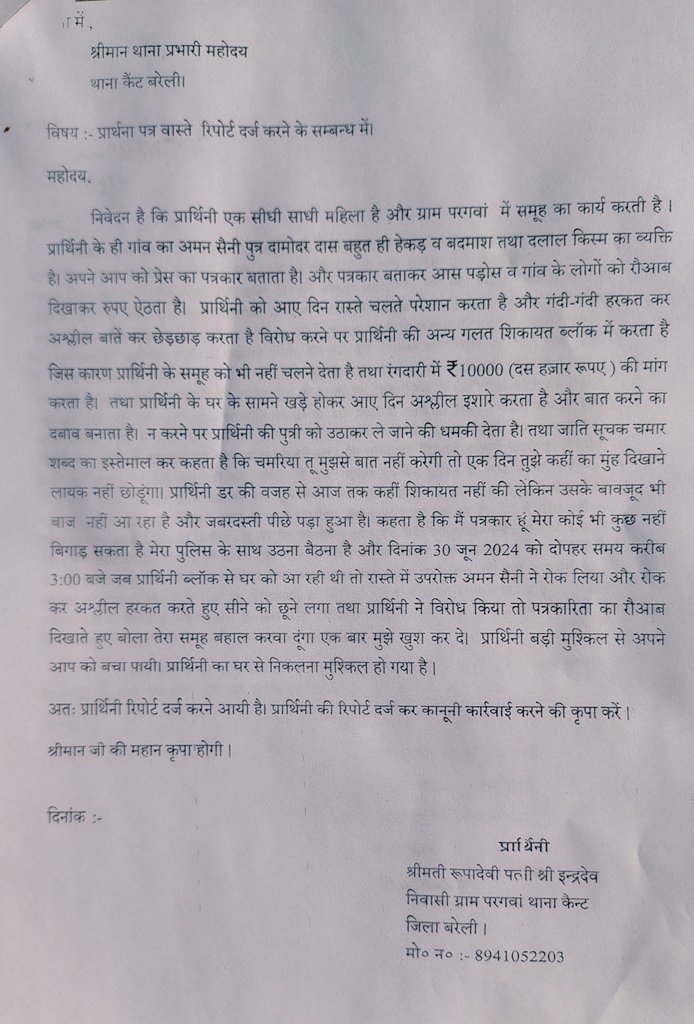 में ,
श्रीमान थाना प्रभारी महोदय
थाना कैंट बरेली।
विषय :- प्रार्थना पत्र वास्ते रिपोर्ट दर्ज करने के सम्बन्ध में।
महोदय,
निवेदन है कि प्रार्थिनी एक सीधी साधी महिला है और ग्राम परगवां में समूह का कार्य करती है ।
प्रार्थिनी के ही गांव का अमन सैनी पुत्र दामोदर दास बहुत ही हेकड़ व बदमाश तथा दलाल किस्म का व्यक्ति
है। अपने आप को प्रेस का पत्रकार बताता है। और पत्रकार बताकर आस पड़ोस व गांव के लोगों को रौआब
दिखाकर रुपए ऐठता है। प्रार्थिनी को आए दिन रास्ते चलते परेशान करता है और गंदी-गंदी हरकत कर
अश्लील बातें कर छेड़छाड़ करता है विरोध करने पर प्रार्थिनी की अन्य गलत शिकायत ब्लॉक में करता है
जिस कारण प्रार्थिनी के समूह को भी नहीं चलने देता है तथा रंगदारी में ₹10000 (दस हज़ार रूपए ) की मांग
करता है। तथा प्रार्थिनी के घर के सामने खड़े होकर आए दिन अश्लील इशारे करता है और बात करने का
दबाव बनाता है। न करने पर प्रार्थिनी की पुत्री को उठाकर ले जाने की धमकी देता है। तथा जाति सूचक चमार
शब्द का इस्तेमाल कर कहता है कि चमरिया तू मुझसे बात नहीं करेगी तो एक दिन तुझे कहीं का मुंह दिखाने
लायक नहीं छोडूंगा। प्रार्थिनी डर की वजह से आज तक कहीं शिकायत नहीं की लेकिन उसके बावजूद भी
बाज नहीं आ रहा है और जबरदस्ती पीछे पड़ा हुआ है। कहता है कि मैं पत्रकार हूं मेरा कोई भी कुछ नहीं
बिगाड़ सकता है मेरा पुलिस के साथ उठना बैठना है और दिनांक 30 जून 2024 को दोपहर समय करीब
3:00 बजे जब प्रार्थिनी ब्लॉक से घर को आ रही थी तो रास्ते में उपरोक्त अमन सैनी ने रोक लिया और रोक
कर अश्लील हरकत करते हुए सीने को छूने लगा तथा प्रार्थिनी ने विरोध किया तो पत्रकारिता का रौआब
दिखाते हुए बोला तेरा समूह बहाल करवा दूंगा एक बार मुझे खुश कर दे। प्रार्थिनी बड़ी मुश्किल से अपने
आप को बचा पायी। प्रार्थिनी का घर से निकलना मुश्किल हो गया है ।
अतः प्रार्थिनी रिपोर्ट दर्ज करने आयी है। प्रार्थिनी की रिपोर्ट दर्ज कर कानूनी कार्रवाई करने की कृपा करें ।
श्रीमान जी की महान कृपा होगी ।
दिनांक :-
प्रार्थिनी
श्रीमती रूपादेवी पत्नी श्री इन्द्रदेव
निवासी ग्राम परगवां थाना कैन्ट
जिला बरेली ।
मो० न० :- 8941052203